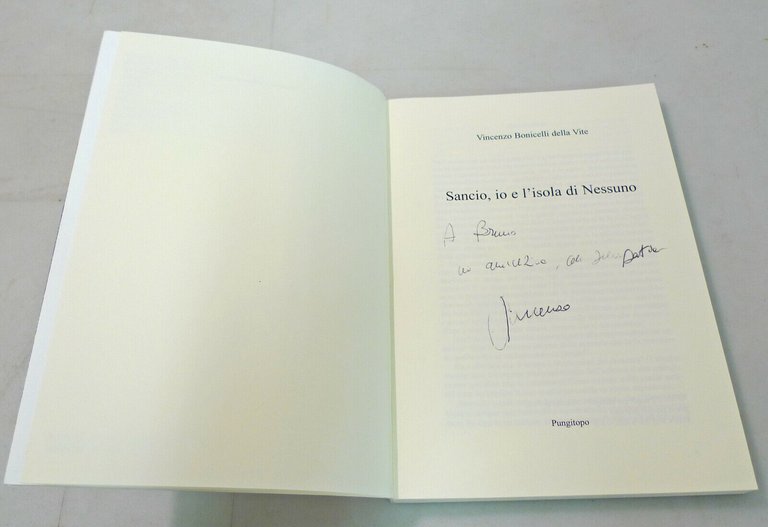 Vincenzo Bonicelli della Vite
Sancio, io e l'isola di Nessuno
A Bruno
in amicizia, con simpatia
Vincenzo
Pungitopo